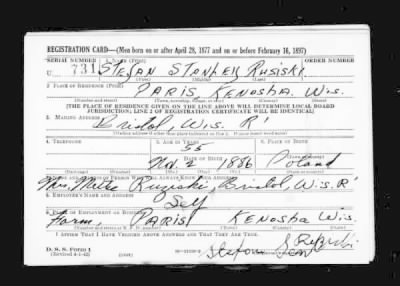 REGISTRATION CARD—(Men born on or after April 28, 1877 and on or before February 16, 1897)
SERIAL NUMBER 1. NAME (Print) ORDER NUMBER
U 731 STEFAN STANLEY RUSISKI
(First) (Middle) (Last)
2. PLACE OF RESIDENCE (Print)
PARIS, KENOSHA, Wis.
(Number and street) (Town, township, village, or city) (County) (State)
[THE PLACE OF RESIDENCE GIVEN ON THE LINE ABOVE WILL DETERMINE LOCAL BOARD
JURISDICTION; LINE 2 OF REGISTRATION CERTIFICATE WILL BE IDENTICAL]
3. MAILING ADDRESS
Bristol, Wis. R1
4. TELEPHONE 5. AGE IN YEARS 6. PLACE OF BIRTH
55
DATE OF BIRTH
Nov. 2 1886 Poland
(Mo.) (Day) (Yr.)
7. NAME AND ADDRESS OF PERSON WHO WILL ALWAYS KNOW YOUR ADDRESS
Mrs. Bristol, Wis. R1
8. EMPLOYER'S NAME AND ADDRESS
Self
9. PLACE OF EMPLOYMENT OR BUSINESS
Farm, PARIS KENOSHA Wis.
(Number and street or R. F. D. number) (Town) (County) (State)
I AFFIRM THAT I HAVE VERIFIED ABOVE ANSWERS AND THAT THEY ARE TRUE.
D. S. S. Form 1
(Revised 4-1-42) (over)